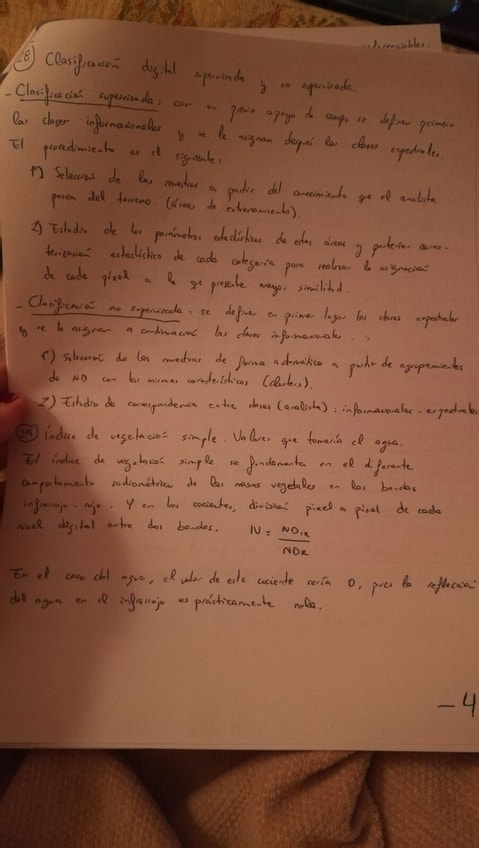 28 Clasificación digital supervisada y no supervisada.
- Clasificación supervisada: con un previo apoyo de campo se definen primero
las clases informacionales y se le asignan después las clases espectrales.
El procedimiento es el siguiente:
1º) Selección de las muestras a partir del conocimiento que el analista
posea del terreno. (áreas de entrenamiento).
2) Estudio de los parámetros estadísticos de estas áreas y posterior carac-
terización estadística de cada categoría para realizar la asignación
de cada píxel a la que presente mayor similitud.
- Clasificación no supervisada: se definen en primer lugar las clases espectrales
y se le asignan a continuación las clases informacionales.
1º) Selección de las muestras de forma automática a partir de agrupamientes
de ND con las mismas características (clusters).
2º) Estudio de correspondencia entre clases (analista): informacionales - espectrales
29 Índice de vegetación simple. Valores que tomaría el agua.
El índice de vegetación simple se fundamenta en el diferente
comportamiento radiométrico de las masas vegetales en las bandas
infrarrojo - rojo. Y en los cocientes, división píxel a píxel de cada
nivel digital entre dos bandas. IV = NDIR / NDR
En el caso del agua, el valor de este cociente sería 0, pues la reflexión
del agua en el infrarrojo es prácticamente nula.
- 4